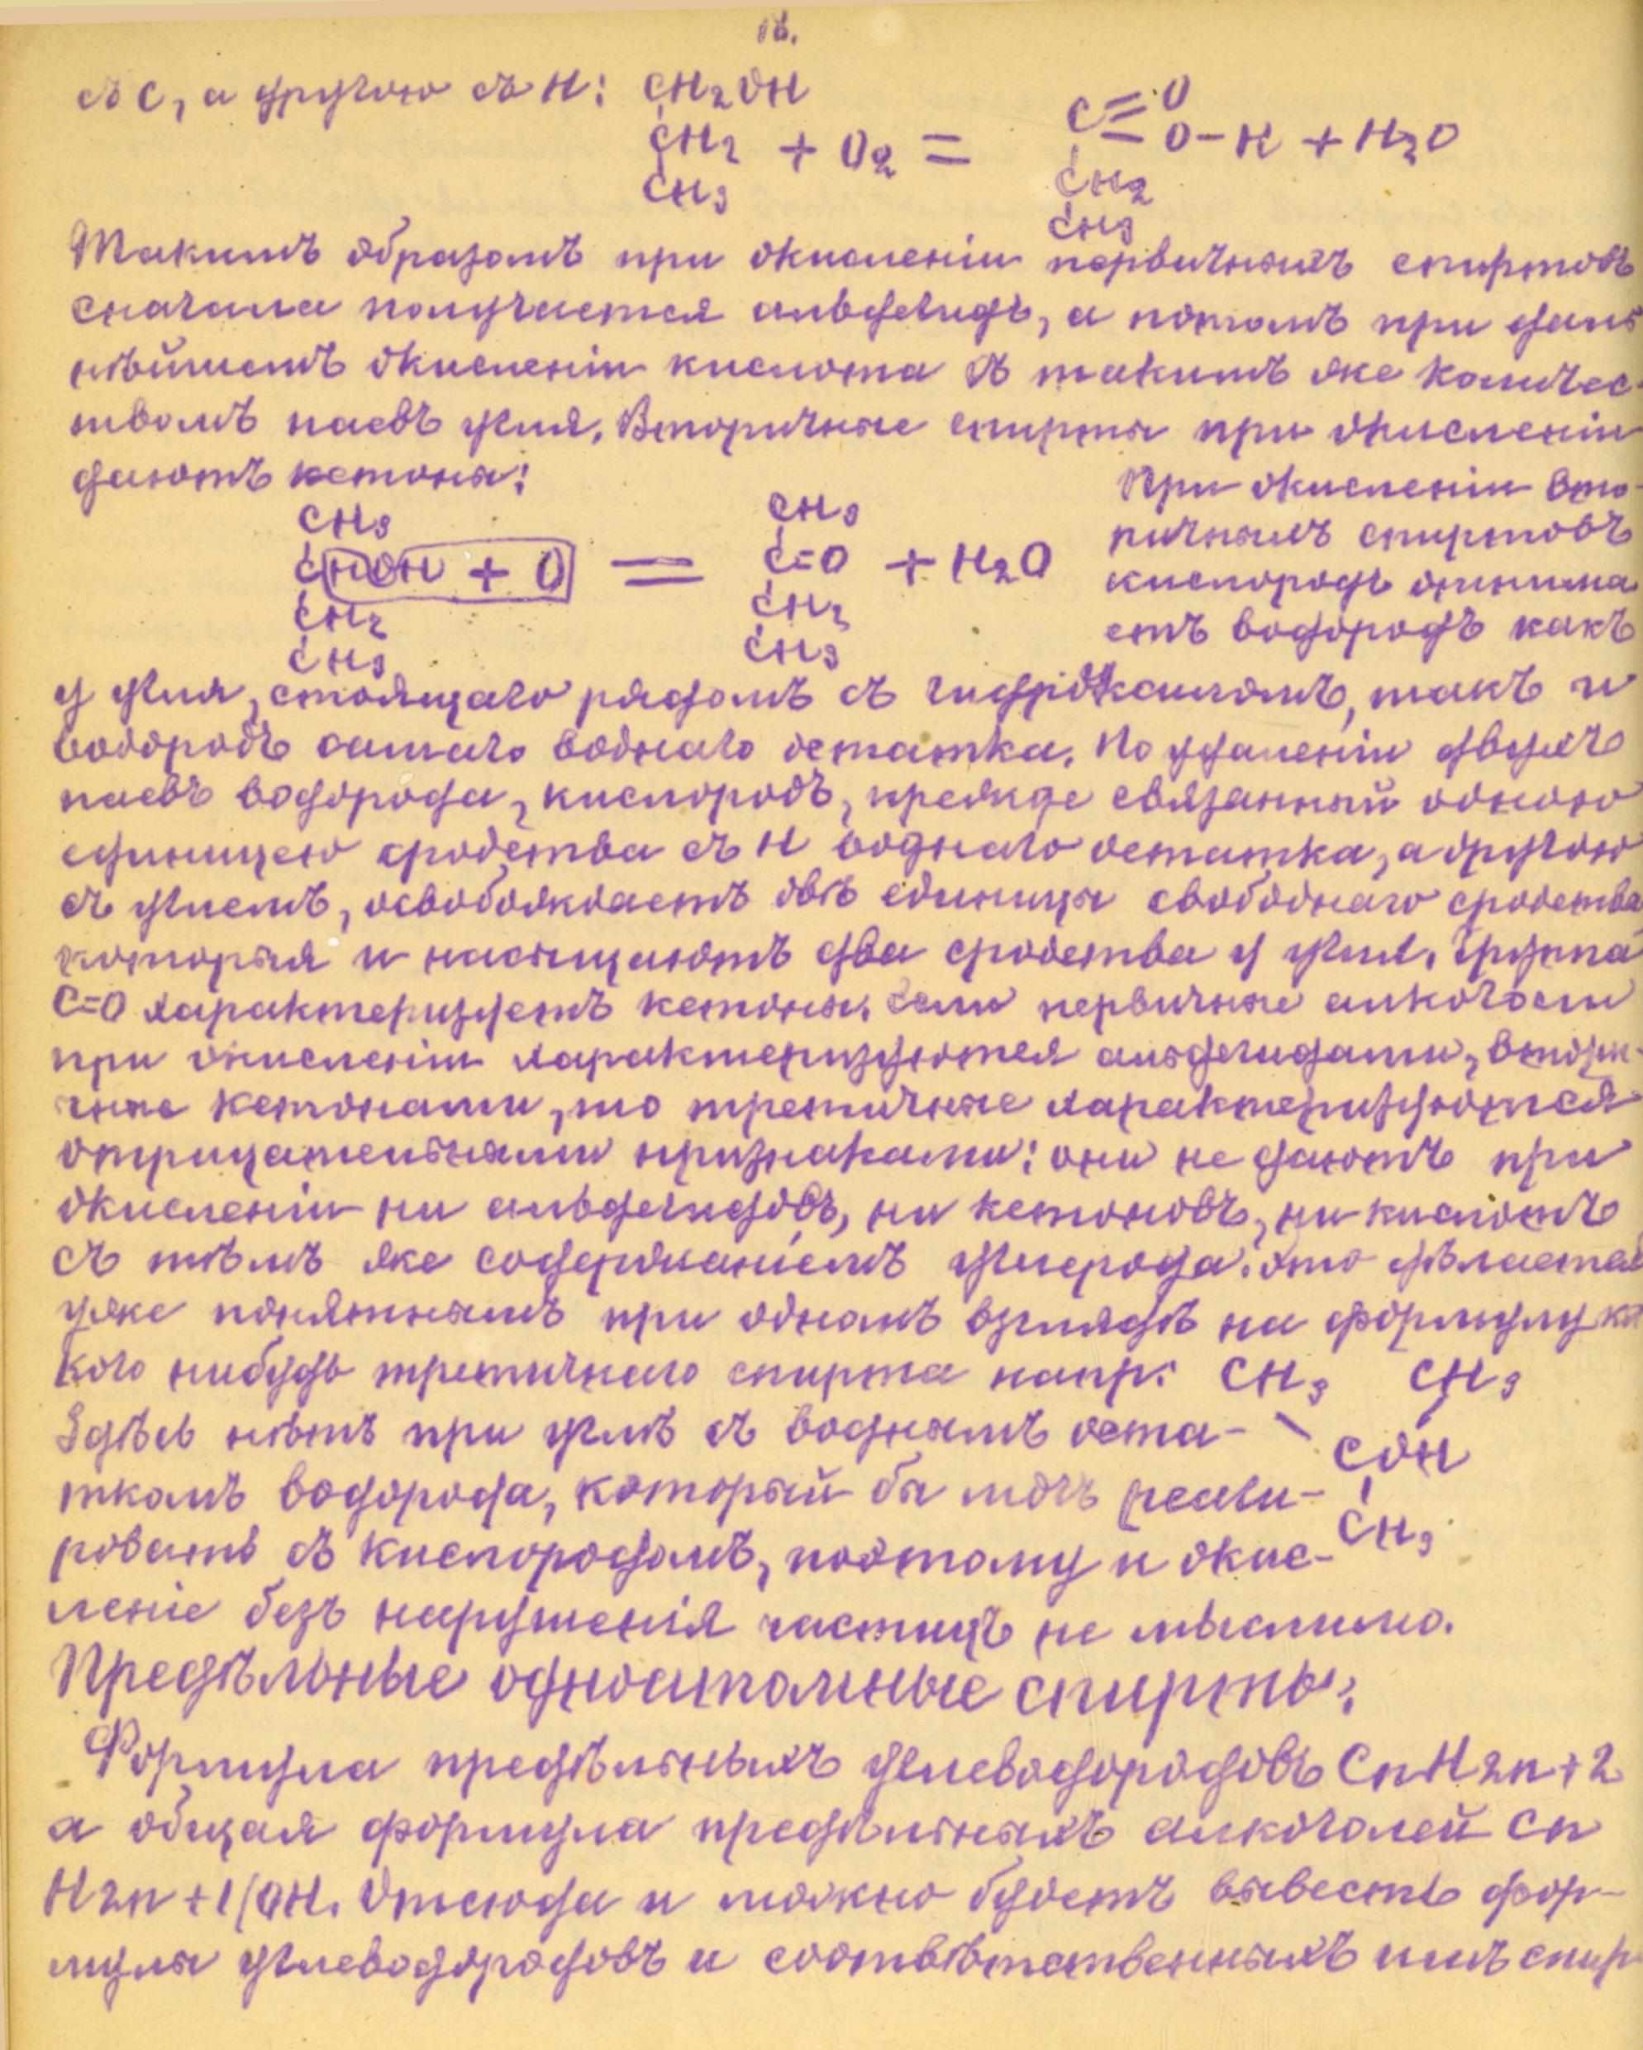 16.
съ C, а другою съ H: CH2OH
CH2 + O2 = C=O O-H + H2O
CH3 CH2
CH3
Такимъ образомъ при окисленіи первичныхъ спиртовъ
сначала получается альдегидъ, а потомъ при даль
нѣйшемъ окисленіи кислота съ такимъ же количес-
твомъ паевъ угля. Вторичные спирты при окисленіи
даютъ кетоны:
CH3 CH3
CHOH + O = C=O + H2O
CH2 CH2
CH3 CH3
При окисленіи вто-
ричныхъ спиртовъ
кислородъ отнима
етъ водородъ какъ
у угля, стоящаго рядомъ съ гидроксиломъ, такъ и
водородъ самаго воднаго остатка. По удаленіи двухъ
паевъ водорода, кислородъ, прежде связанный одною
единицею сродства съ H воднаго остатка, а другою
съ углемъ, освобождаетъ двѣ единицы свободнаго сродства
которыя и насыщаютъ два сродства у угля. Группа
C=O характеризуетъ кетоны. Если первичные алкоголи
при окисленіи характеризуются альдегидами, втори-
чные кетонами, то третичные характеризуются
отрицательными признаками: они не даютъ при
окисленіи ни альдегидовъ, ни кетоновъ, ни кислотъ
съ тѣмъ же содержаніемъ углерода. Это дѣлается
уже понятнымъ при одномъ взглядѣ на формулу ка
кого нибудь третичнаго спирта напр: CH3 CH3
Здѣсь нѣтъ при углѣ съ воднымъ оста- COH
ткомъ водорода, который бы могъ реаги- CH3
ровать съ кислородомъ, поэтому и окис-
леніе безъ нарушенія частицъ не мыслимо.
Предѣльные одноатомные спирты:
Формула предѣльныхъ углеводородовъ CnH2n+2
а общая формула предѣльныхъ алкоголей Cn
H2n+1(OH. Отсюда и можно будетъ вывесть фор-
мулы углеводородовъ и соотвѣтственныхъ имъ спир